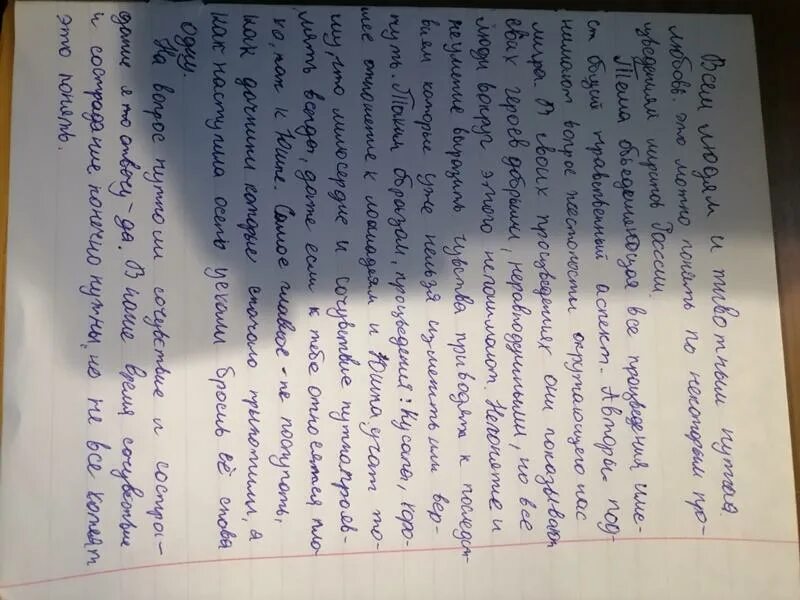 Всем людям и животным нужна
любовь. это можно понять по некоторым про-
изведениям миртов России.
Тема объеденяющая все произведения име-
ет общий нравственный аспект. Авторы под-
нимают вопрос жестокости окружающего нас
мира. В своих произведениях они показывают
своих героев добрыми, неравнодушными, но все
люди вокруг этого непонимают. Непонятие и
неумение выразить чувства приводят к последст
виям которые уже нельзя изменить или вер-
нуть. Таким образом, произведения: Кусака, Хоро-
шее отношение к лошадям и Юшка учат то-
му, что милосердие и сочувствие нужно прояв-
лять всегда, даже если к тебе относятся пло
хо, как к Юшке. Самое главное - не поступать,
как дачники которые сначало приютили, а
как наступила осень уехали бросив её снова
одну.
На вопрос нужно ли сочувствие и состра-
дание я то отвечу - да. В наше время сочувствие
и сострадание конечно нужны, но не все хотят
это понять.